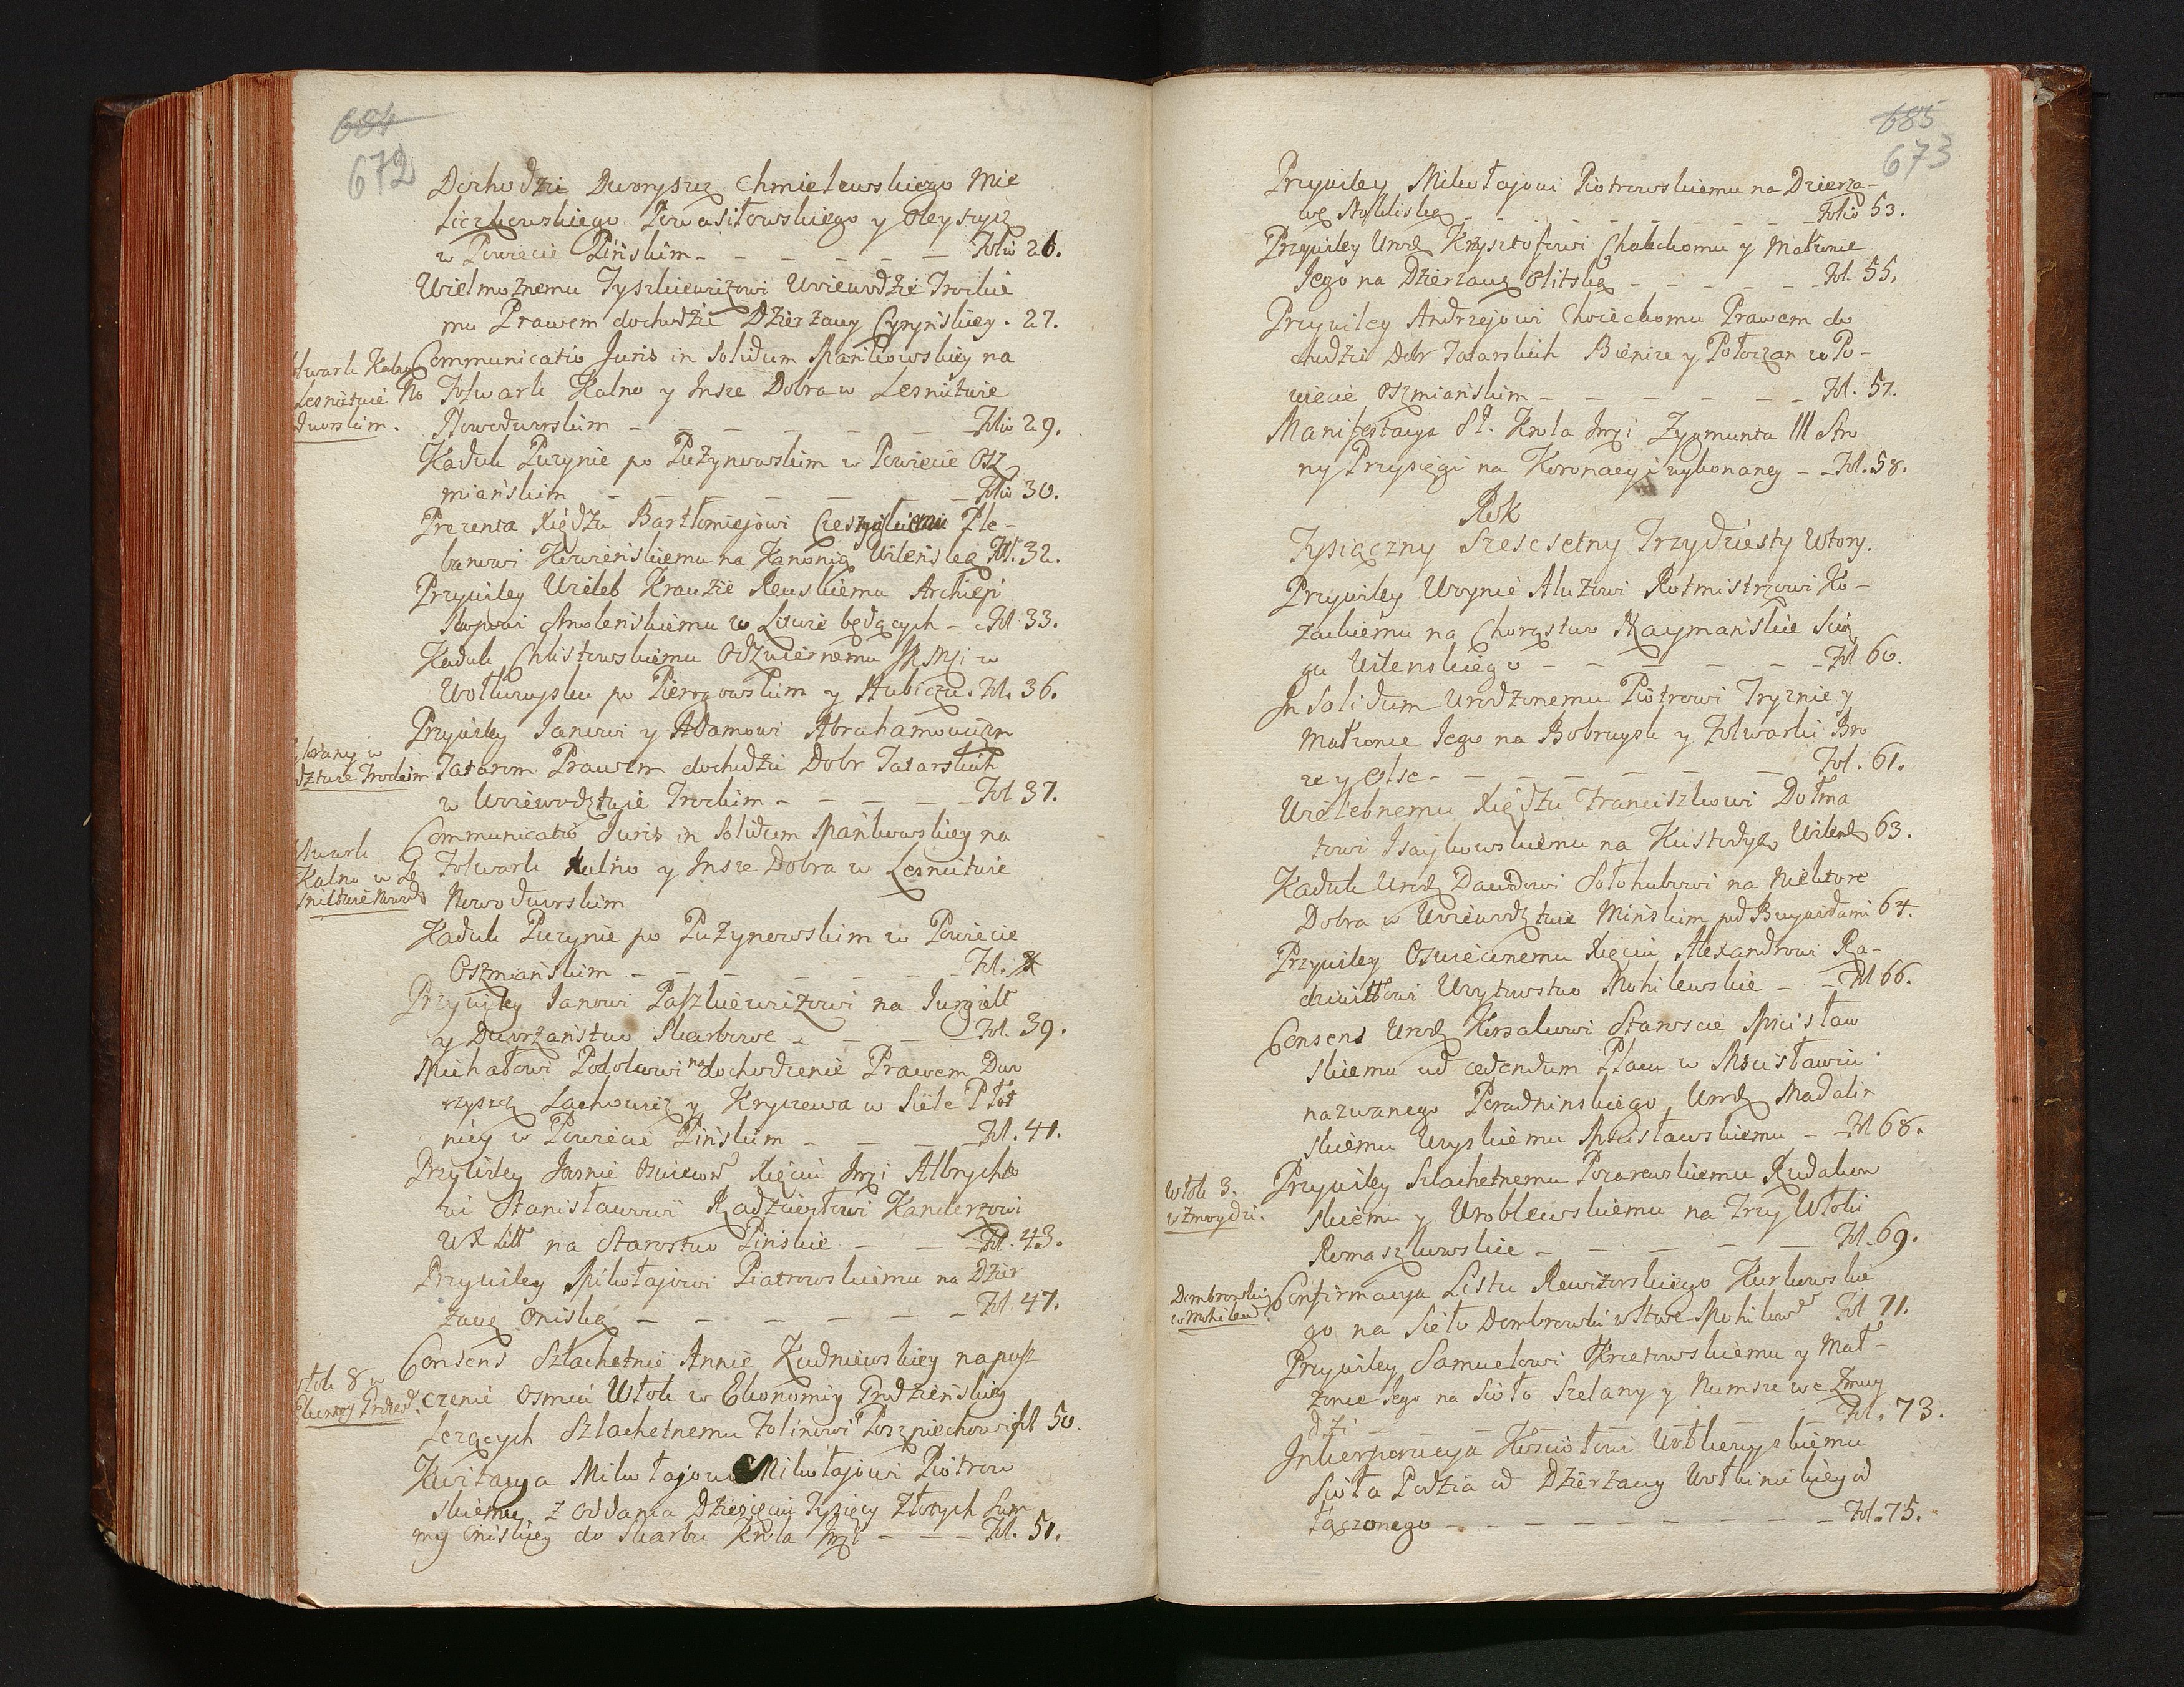 684
672
Dochodzic Dworyszcz Chmielewskiego Mie
liczkowskiego Powasiłowskiego y Oleyszyc
w Powiecie Pińskim - - - - - - Folio 26.
Wielmoznemu Tyszkiewiczowi Woiewodzie Trockie
mu Prawem dochodzic Dzierzawy Cyryńskiey. 27.
Folwark Kalno
Lesnictwie No
dworskim.
Communicatio Juris in Solidum Mańkowskiey na
Folwark Kalno y Insze Dobra w Lesnictwie
Nowodworskim - - - - - - Folio 29.
Kaduk Puzynie po Pużynowskim w Powiecie Osz
miańskim - - - - - - Folio 30.
Prezenta Xiędzu Bartłomiejowi Ple-
banowi Kowieńskiemu na Kanonią Wileńską Fol. 32.
Przywiley Wieleb Krauzie Rewskiemu Archiepi
skopowi Smoleńskiemu w Litwie będących - Fol 33.
Kaduk Chlistowskiemu Odzwiernemu JKMci w
Wołkowysku po Pierogowskim y Stubiczu. Fol. 36.
w
dztwie Trockim
Przywiley Janowi y Adamowi Abrahamowiczom
Tatarom Prawem dochodzic Dobr Tatarskich
w Woiewodztwie Trockim - - - - - Fol 37.
Folwark
Kalno w Le
snictwie Nowod
Communicatio Juris in Solidum Mańkowskiey na
Folwark Kalno y Insze Dobra w Lesnictwie
Nowodworskim
Kaduk Puzynie po Pużynowskim w Powiecie
Oszmiańskim - - - - - - Fol.
Przywiley Janowi Paszkiewiczowi na Jurgielt
y Dworzaństwo Skarbowe - - - - Fol. 39.
Michałowi Podolcowi na dochodzenie Prawem Dwo
ryszcz Lachowicz y Kryczewa w Siele Płot
nicy w Powiecie Pińskim - - - - Fol. 41.
Przywiley Jasnie Oswiecod Xięciu Jmci Albrychto
wi Stanisławowi Radziwiłowi Kanclerzowi
W X Litt na Starostwo Pinskie - - - Fol. 43.
Przywiley Mikołajowi Piotrowskiemu na Dzier
zawę Oniską - - - - - - - Fol. 47.
włok 8 w
Ekonomij Grodzed.
Consens Szlachetnie Annie Kudniewskiey napusz
czenie Osmiu Włok w Ekonomiy Grodzieńskiey
Lezących Szlachetnemu Folinowi Poszniechowi fol 50.
Kwitacya Mikołajowi Mikołajowi Piotrow
skiemu z Oddania Dziesięciu Tysięcy Złotych Sum
my Oniskiey do Skarbu Krola Jmci - - - Fol. 51.
685
673
Przywiley Mikołajowi Piotrowskiemu na Dzierza-
wę Stokliską - - - - - - - - - Folio 53.
Przywiley Urodz Krzysztofowi Chaleckomu y Małzonie
Jego na Dzierzawę Olitską - - - - - - Fol. 55.
Przywiley Andrzejowi Chocieckomu Prawem do
chodzic Dobr Tatarskich Bienice y Połoczan w Po-
wiecie Oszmiańskim - - - - - - Fol. 57.
Manifestacya St. Krola Jmci Zygmunta III Stro
ny Przysięgi na Koronacyi wykonaney - - Fol. 58.
Rok
Tysiączny Szescsetny Trzydziesty Wtory.
Przywiley Woynie Ałuzowi Rotmistrzowi Ko-
zackiemu na Chorąstwo Naymańskie Sciąg
gu Wilenskiego - - - - - - - Fol 60.
In Solidum Urodzonemu Piotrowi Tryznie y
Małzonce Jego na Bobruysk y Folwarki Bro
ze y Olse - - - - - - - Fol. 61.
Wielebnemu Xiędzu Franciszkowi Dołma
towi Isaykowskiemu na Kustodyą Wileńs 63.
Kaduk Urodz Dawidowi Sołohubowi na Niektore
Dobra w Woiewodztwie Mińskim pod Buywidami 64.
Przywiley Oswieconemu Xięciu Alexandrowi Ra-
dziwiłłowi Woytowstwo Mohilewskie - - Fol 66.
Consens Urodz Korsakowi Staroscie Mscisław
skiemu ad cedendum Placu w Mscisławiu
nazwanego Poradninskiego Urodz Madalin
skiemu Woyskiemu Mscisławskiemu - Fol 68.
Włok 3.
w Zmoydzi.
Przywiley Szlachetnemu Pozarewskiemu Rudakow
skiemu y Wroblewskiemu na Trzy Włoki
Romaszkowskie - - - - - - Fol. 69.
Dombrowki
w Mohilewd
Confirmacya Listu Rewizorskiego Kurkowskie
go na Sieło Dombrowki w Stwie Mohilewd Fol 71.
Przywiley Samuelowi Krzetowskiemu y Mał-
zonce Jego na Sioło Szelany y Rumsze we Zmuy
dzi - - - - - - - - Fol. 73.
Inkorporacya Kosciołowi Wołkowyskiemu
Sioła Podzia od Dzierzawy Wołkinickiey od
łączonego - - - - - - - - - Fol. 75.